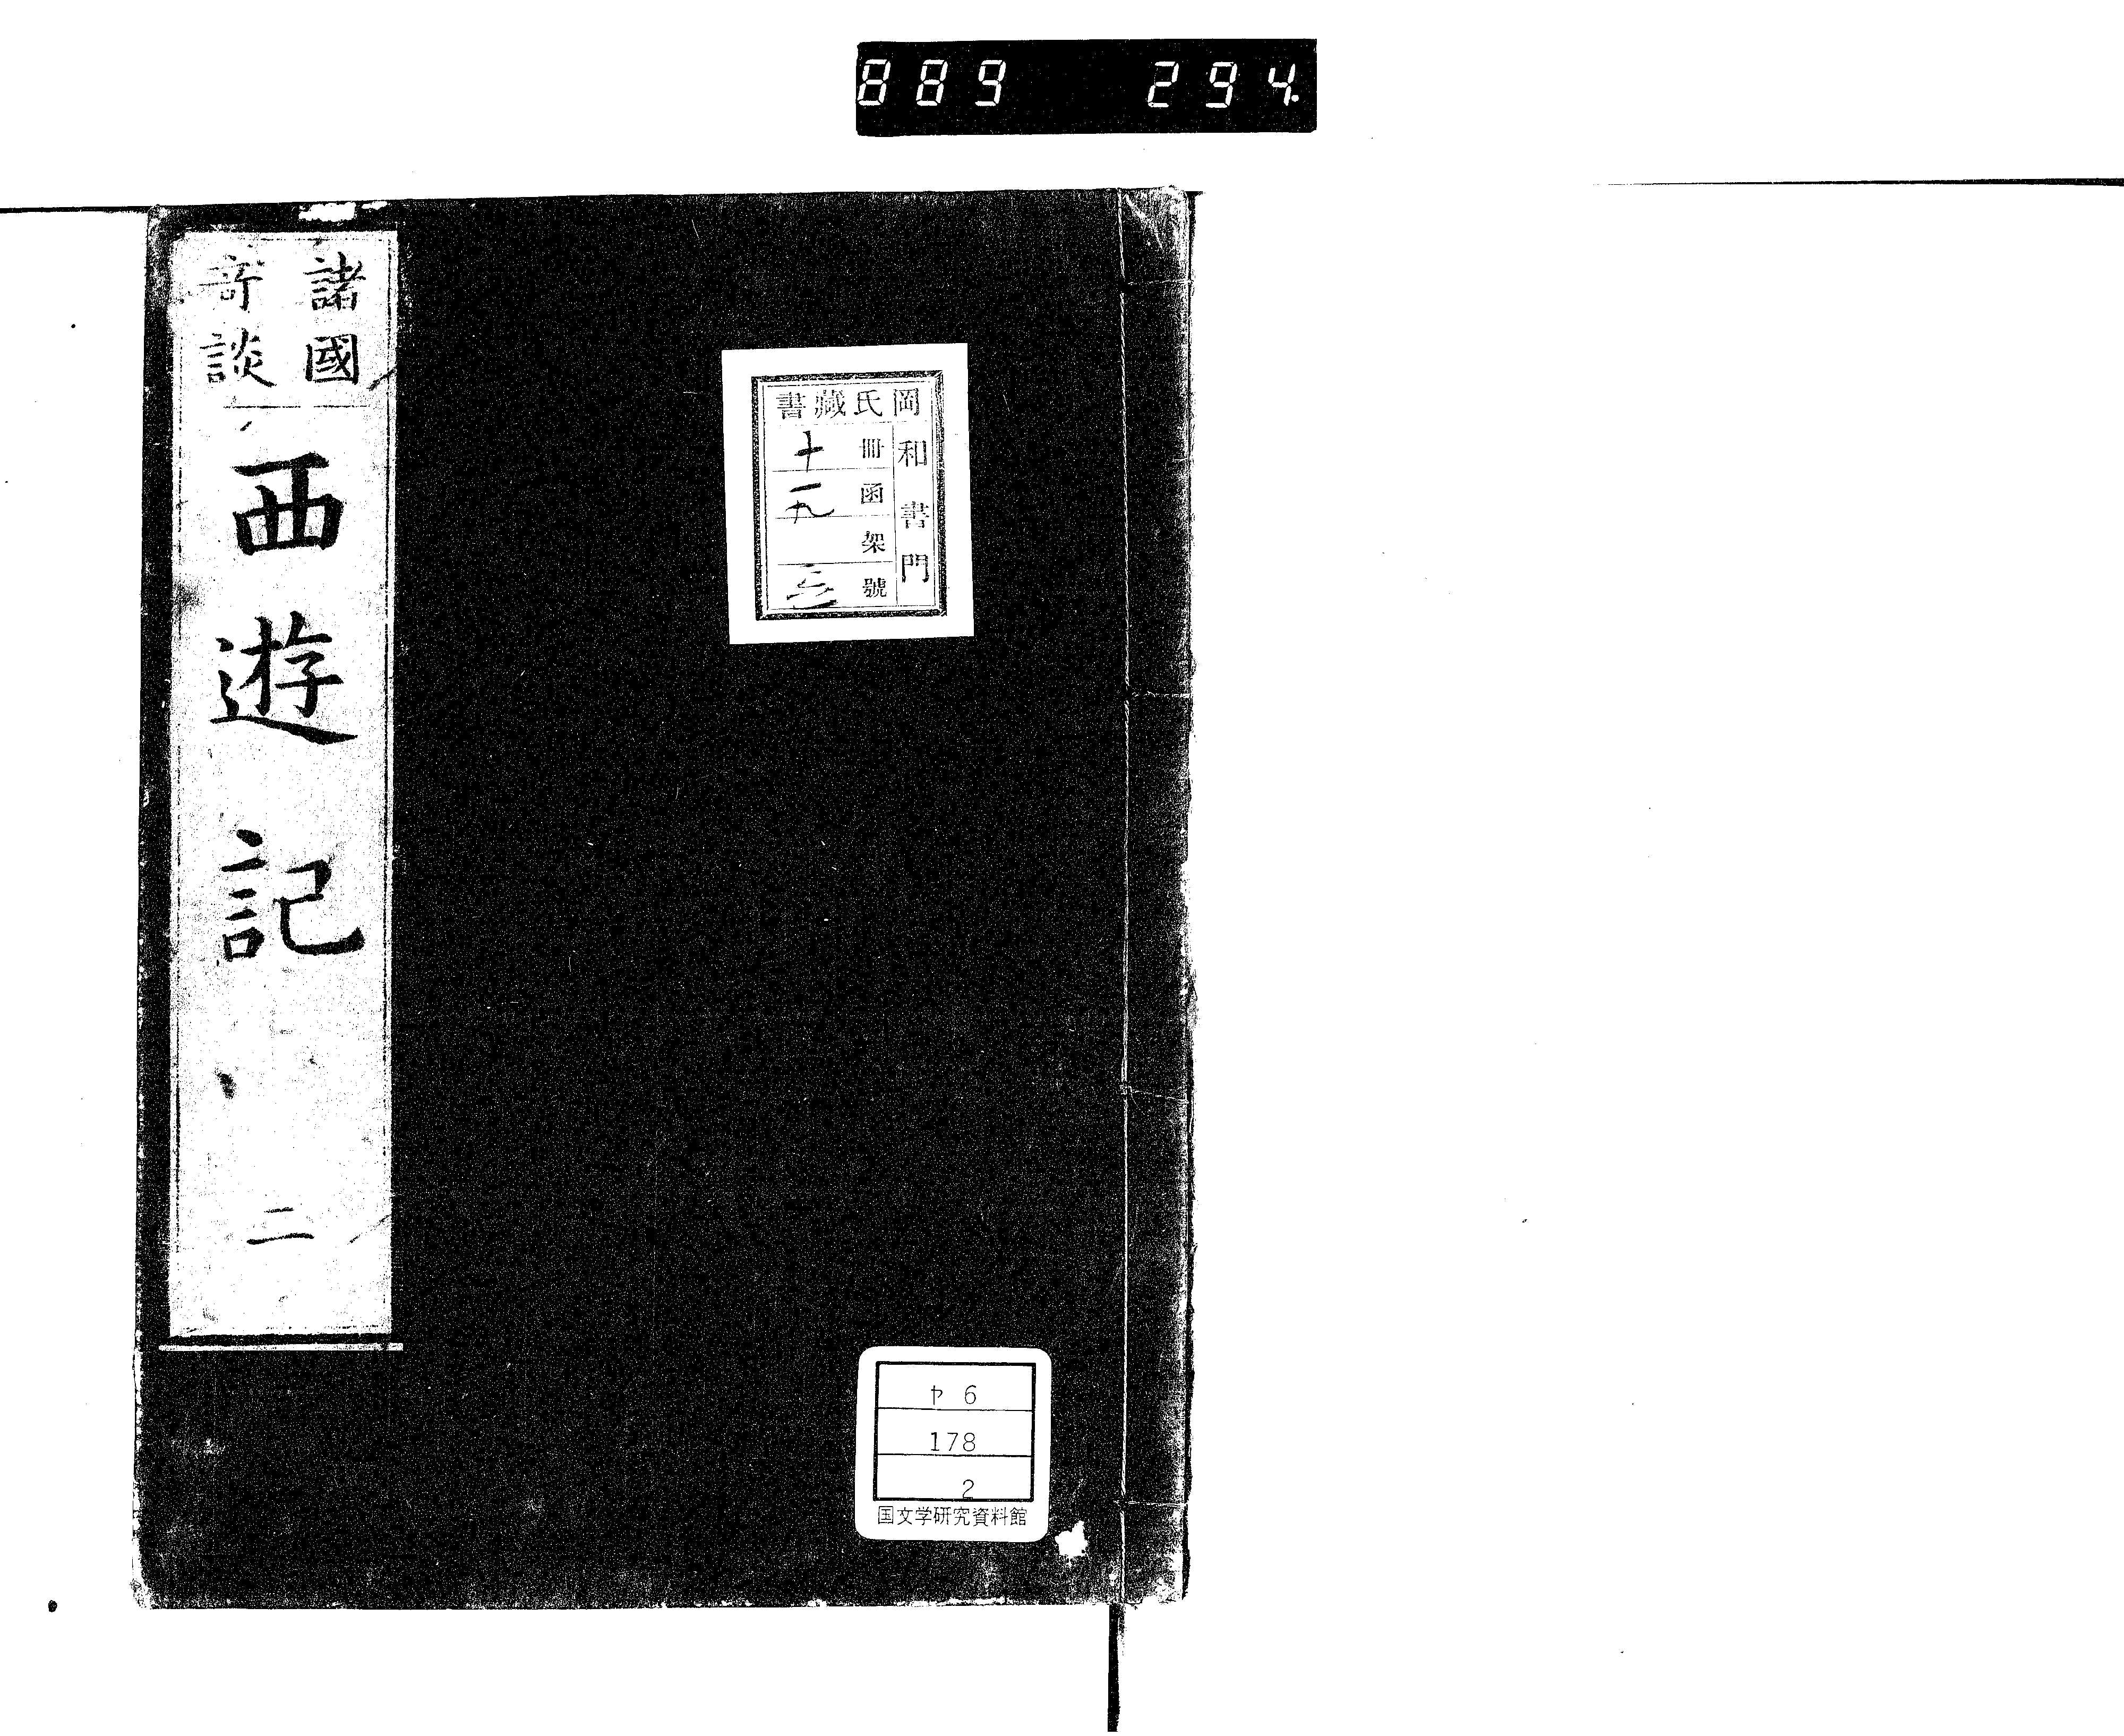 889 294.
諸國
奇談
西遊記
二
岡氏藏書
和書門
冊 十
函 一九
架
號
ヤ 6
178
2
国文学研究資料館